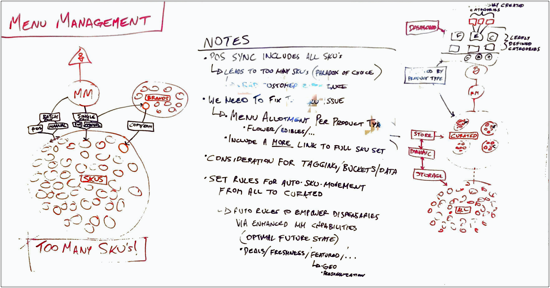 MENU MANAGEMENT
MM
BRANDS
SKUS
TOO MANY SKU's!
NOTES
• POS SYNC INCLUDES ALL SKU's
↳ LEADS TO TOO MANY SKUs (PARADOX OF CHOICE)
CUSTOMER
• WE NEED TO FIX ISSUE
↳ MENU ALLOTMENT PER PRODUCT
• FLOWER/EDIBLES/...
• INCLUDE A MORE LINK TO FULL SKU SET
• CONSIDERATION FOR TAGGING, BUCKETS/DATA
• SET RULES FOR AUTO-SKU-MOVEMENT
FROM ALL TO CURATED
↳ AUTO RULES TO EMPOWER DISPENSARIES
VIA ENHANCED MM CAPABILITIES
(OPTIMAL FUTURE STATE)
• DEALS/FRESHNESS/FEATURED/...
↳ GEO
PERSONALIZATION
CREATED
CATEGORIES
DASHBOARD
F
E
C
LEAFLY
DEFINED
CATEGORIES
BY
PRODUCT TYPE
MM
STORE
CURATED
DYNAMIC
STORAGE
ALL